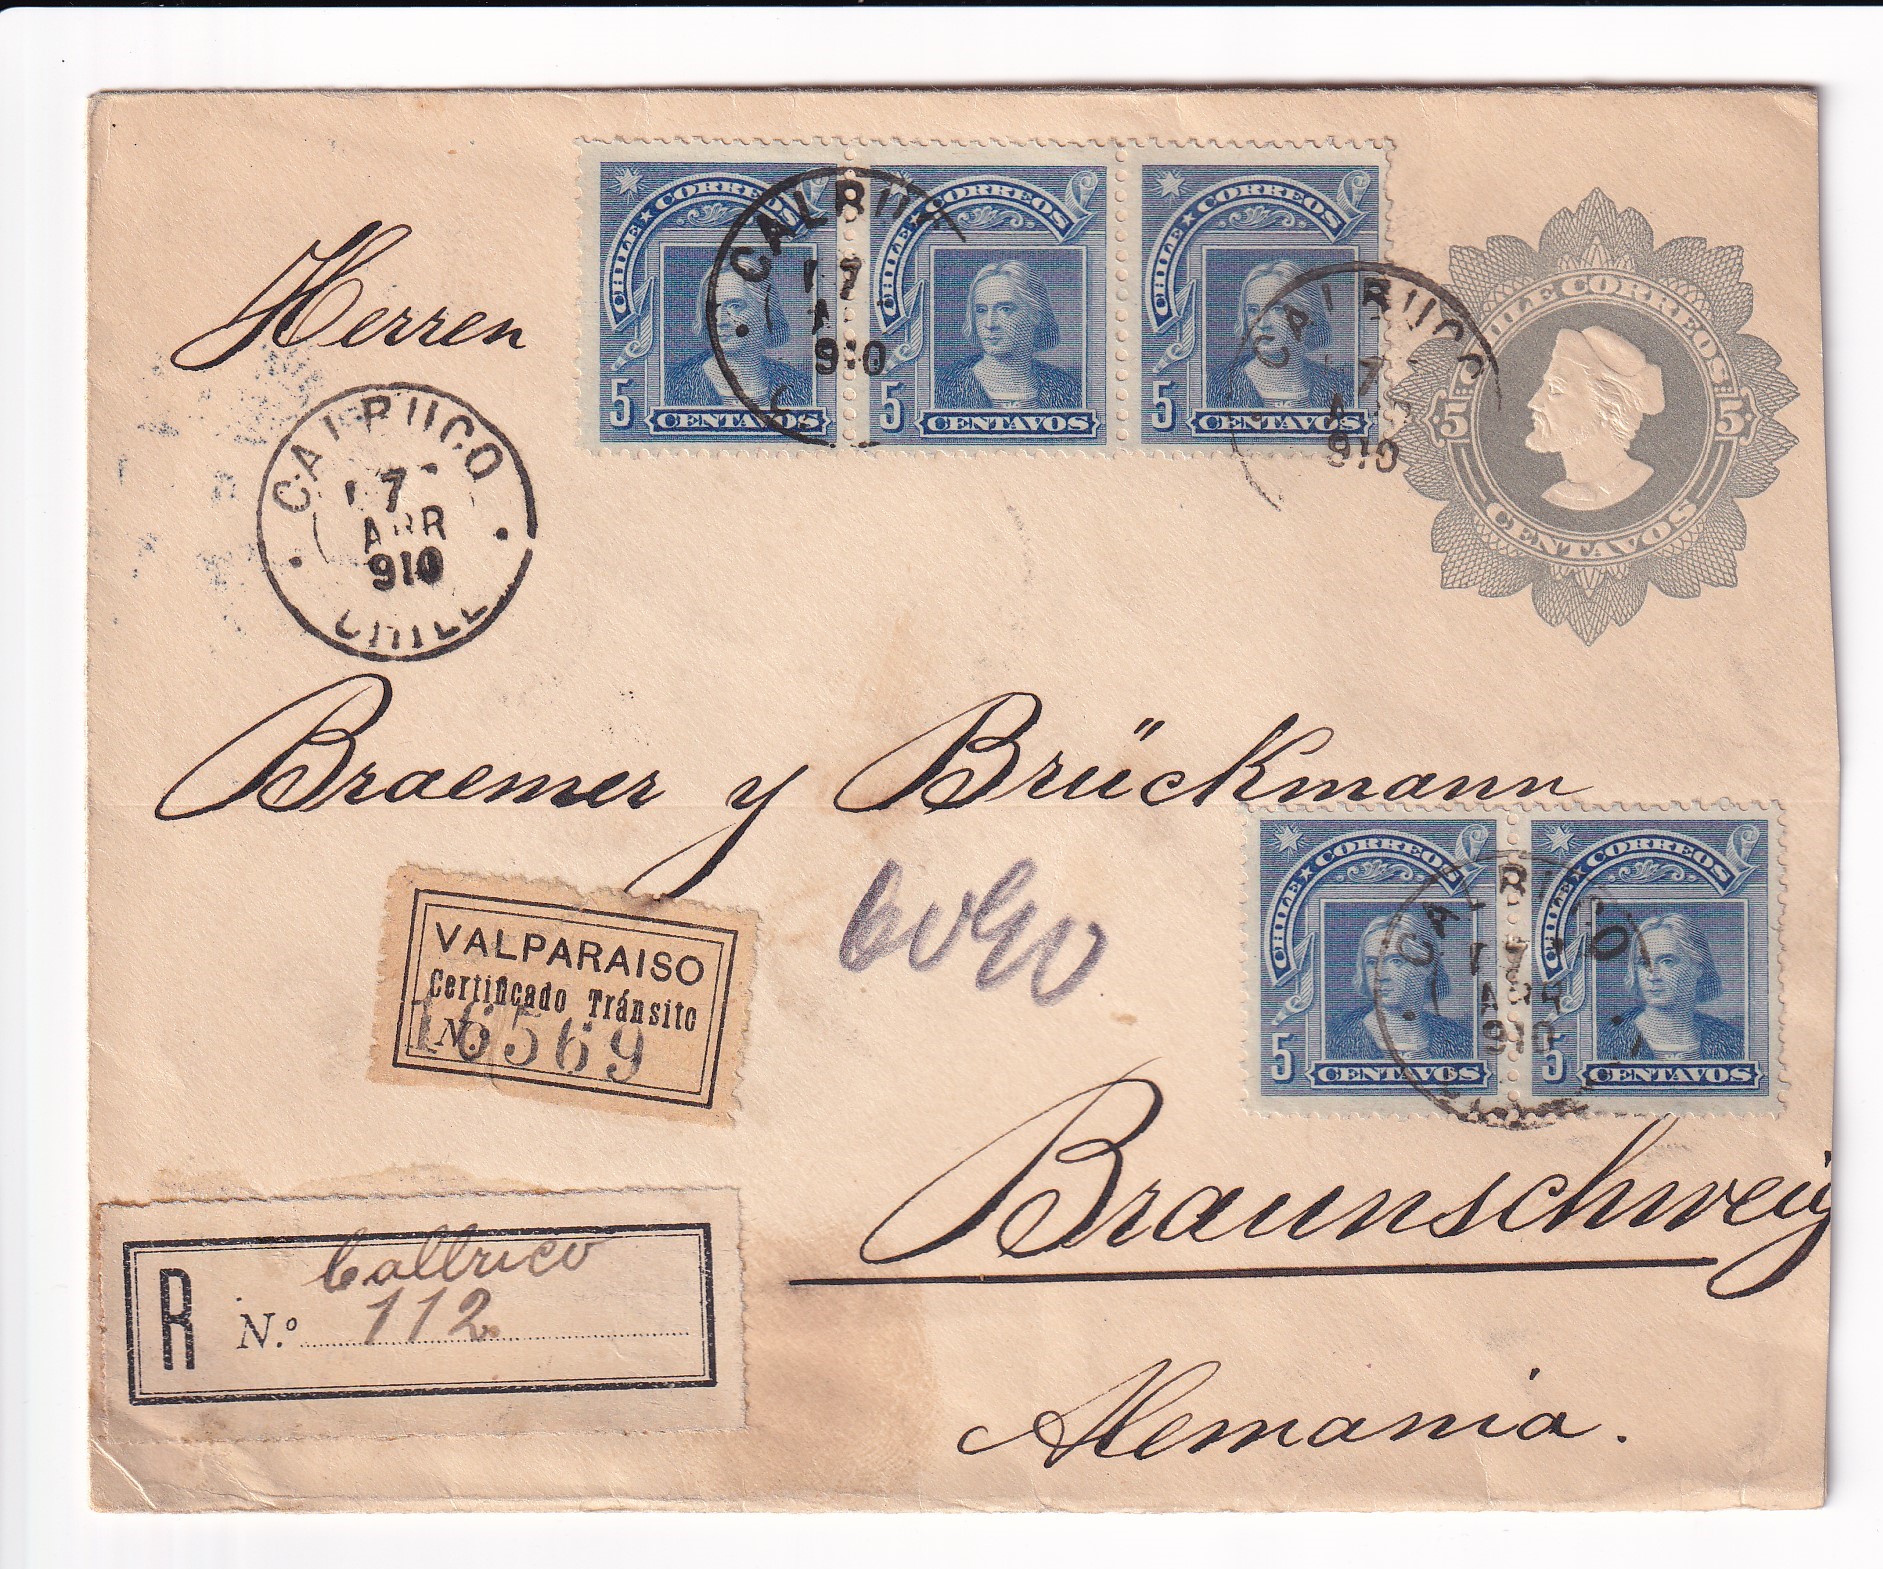 CHILE ★ CORREOS
5 CENTAVOS
CHILE ★ CORREOS
5 CENTAVOS
CHILE ★ CORREOS
5 CENTAVOS
CHILE CORREOS
5 5
CENTAVOS
CALBUC
17
910
CALBUCO
7
910
Herren
CALBUCO
17
ABR
910
CHILE
Braemer y Brückmann
CHILE ★ CORREOS
5 CENTAVOS
CHILE ★ CORREOS
5 CENTAVOS
CALB CO
17
ABR
910
VALPARAISO
Certificado Tránsito
No. 16569
Braunschweig
R
Calbuco
N.º 112
Alemania.